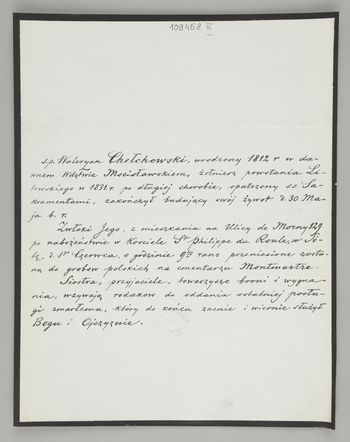 109458 III
ś.p. Waleryan Chełchowski, urodzony 1812 r w da-
wnem Wdztwie Mscisławskiem, żołnierz powstania Li-
tewskiego w 1831.r. po długiej chorobie, opatrzony ss Sa-
kramentami, zakończył budujący swój żywot d. 30 Ma-
ja b. r.
Zwłoki Jego, z mieszkania na Ulicy de Morny 129
po nabożeństwie w Kościele St Philippe du Roule, w So-
tę, d. 1go Czerwca, o godzinie 9tej rano przeniesione zosta-
ną do grobów polskich na cmentarzu Montmartre.
Siostra, przyjaciele, towarzysze broni i wygna-
nia, wzywają rodaków do oddania ostatniej posłu-
gi zmarłemu, który do końca zacnie i wiernie służył
Bogu i Ojczyznie.